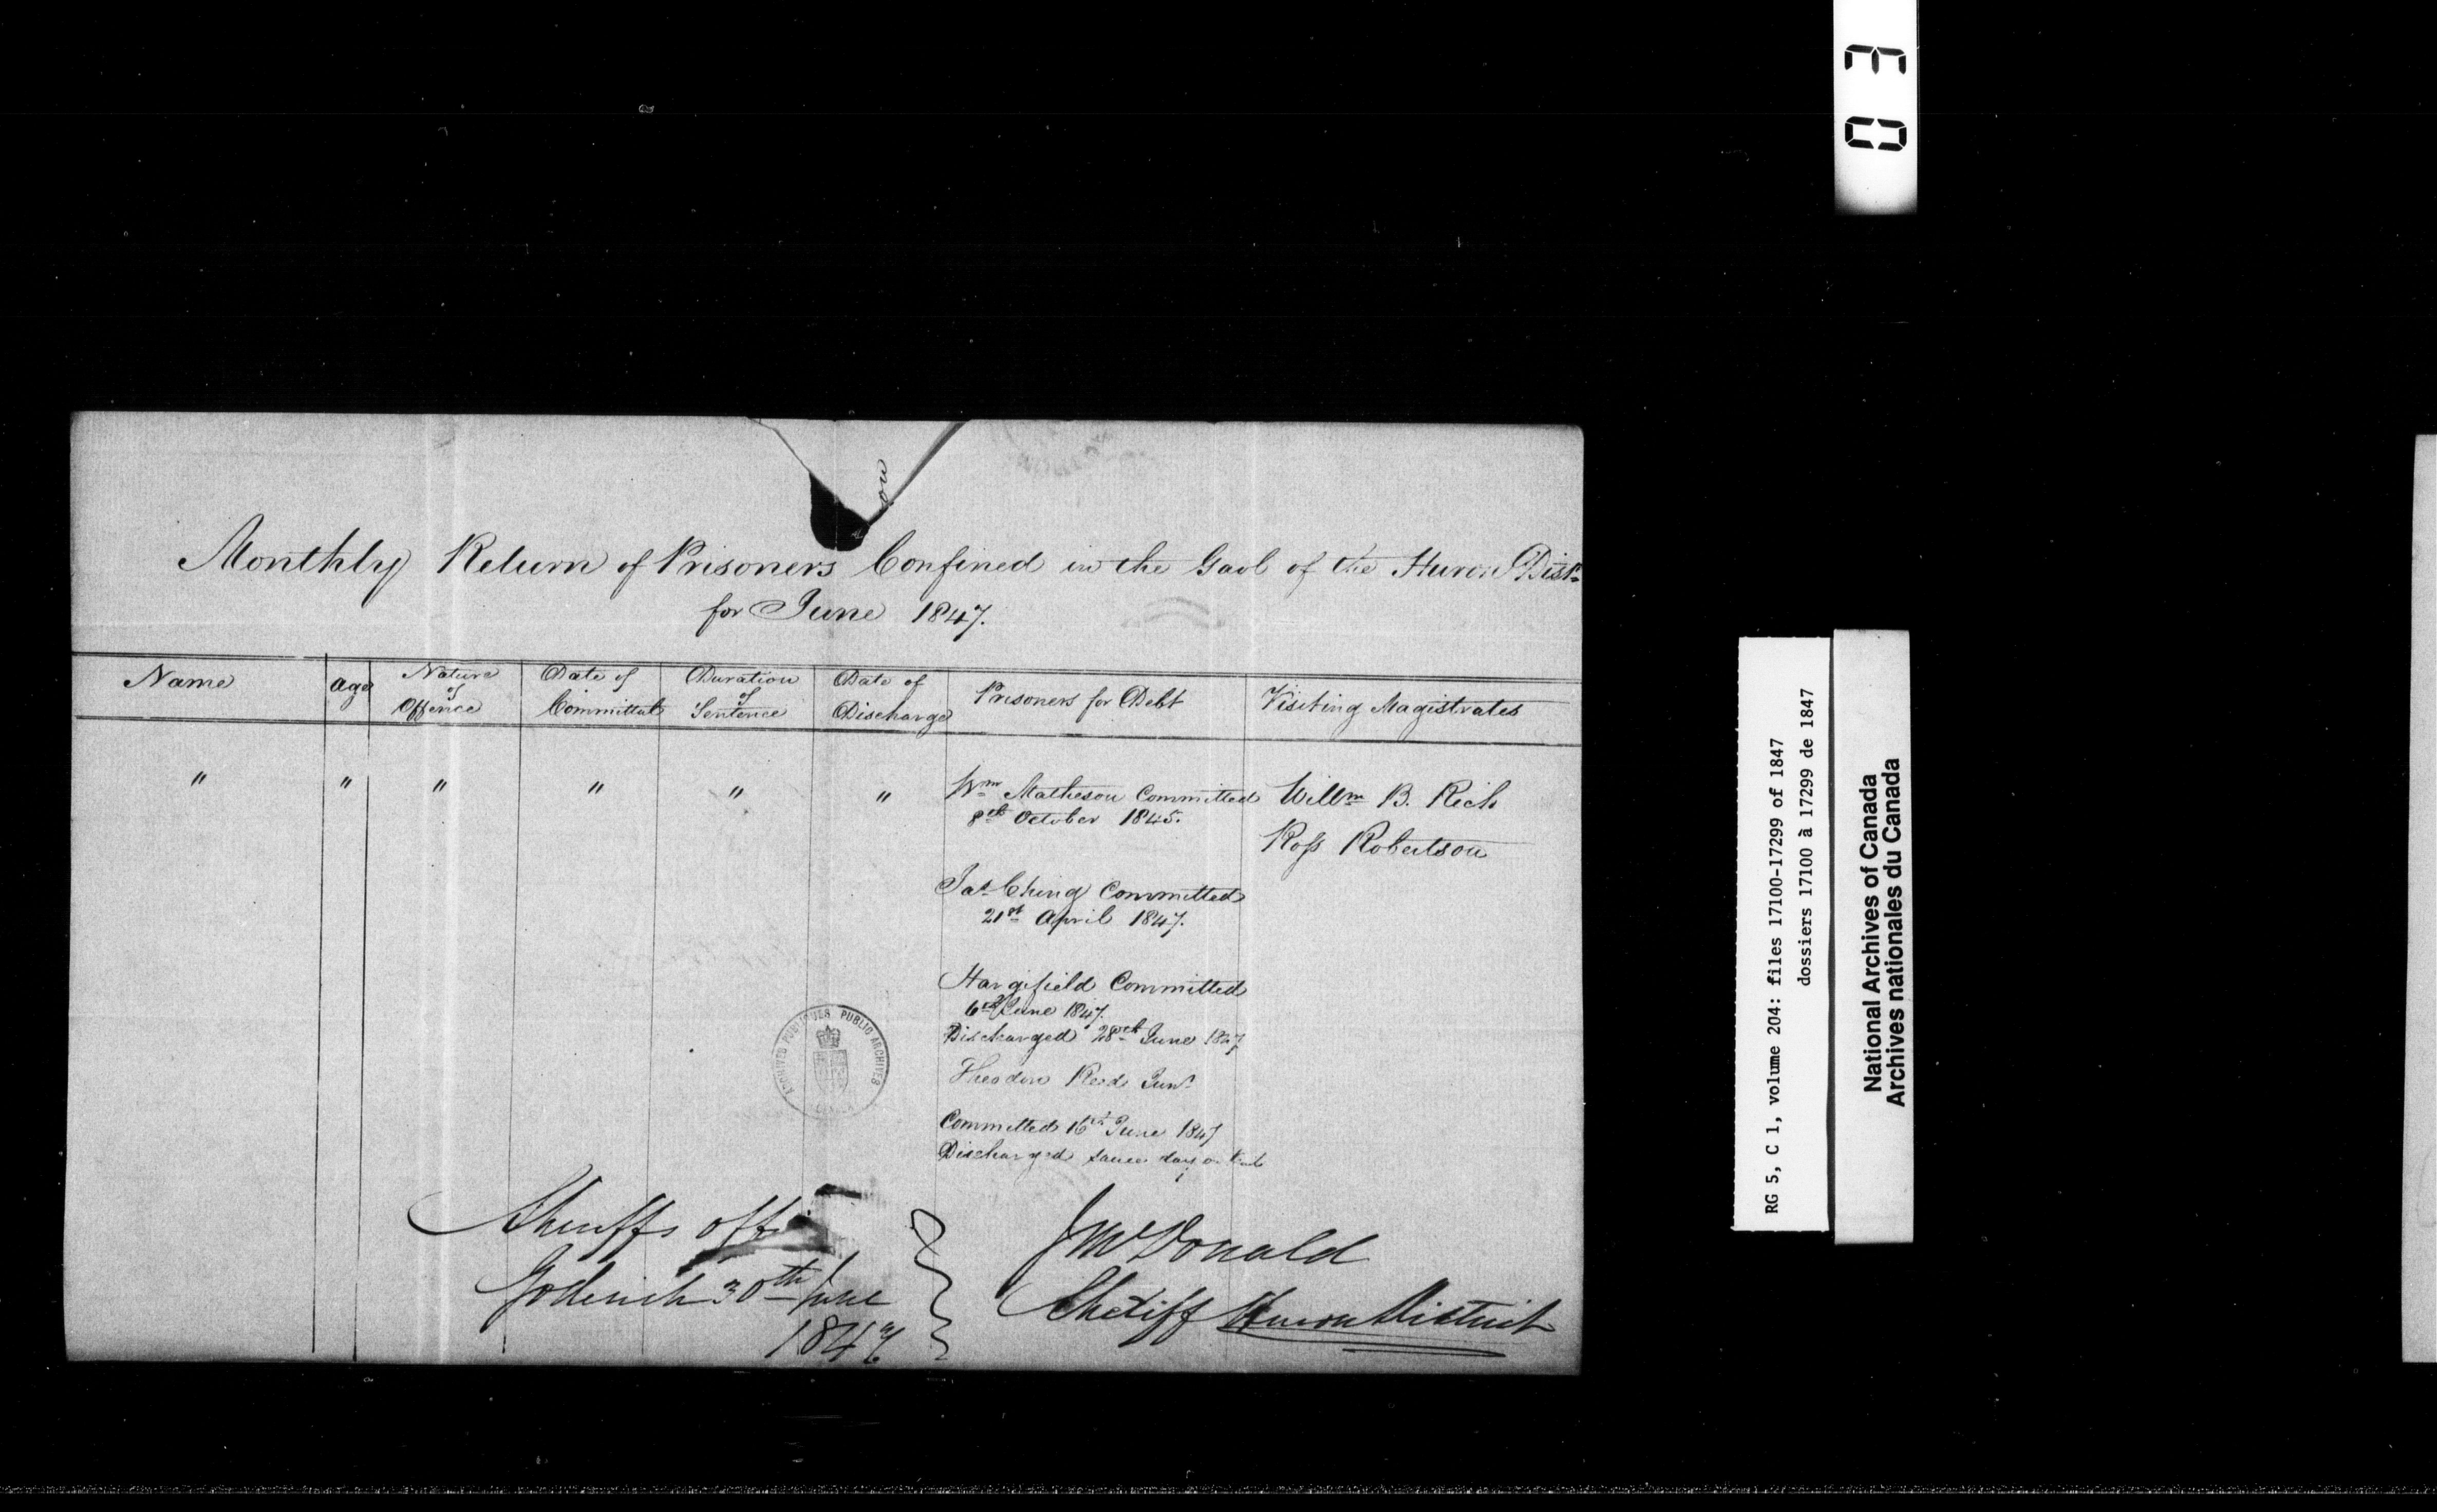 03
on
Monthly Return of Prisoners Confined in the Gaol of the Huron Dist.
for June 1847.
Name
Age
Nature of Offence
Date of Committal
Duration of Sentence
Date of Discharge
Prisoners for Debt
Visiting Magistrates
" " " " " "
Wm Matheson Committed
8th October 1845.
Willm B. Rich
Ross Robertson
Jas Ching Committed
21st April 1847.
Committed
6th June 1847.
Discharged 28th June 1847
Theodore Reed Junr
Committed 16th June 1847
Discharged same day on
ARCHIVES PUBLIQUES PUBLIC ARCHIVES
CANADA
Sheriffs Offi
Goderich 30th June
1847
J McDonald
Sheriff Huron District
RG 5, C 1, volume 204: files 17100-17299 of 1847
dossiers 17100 à 17299 de 1847
National Archives of Canada
Archives nationales du Canada